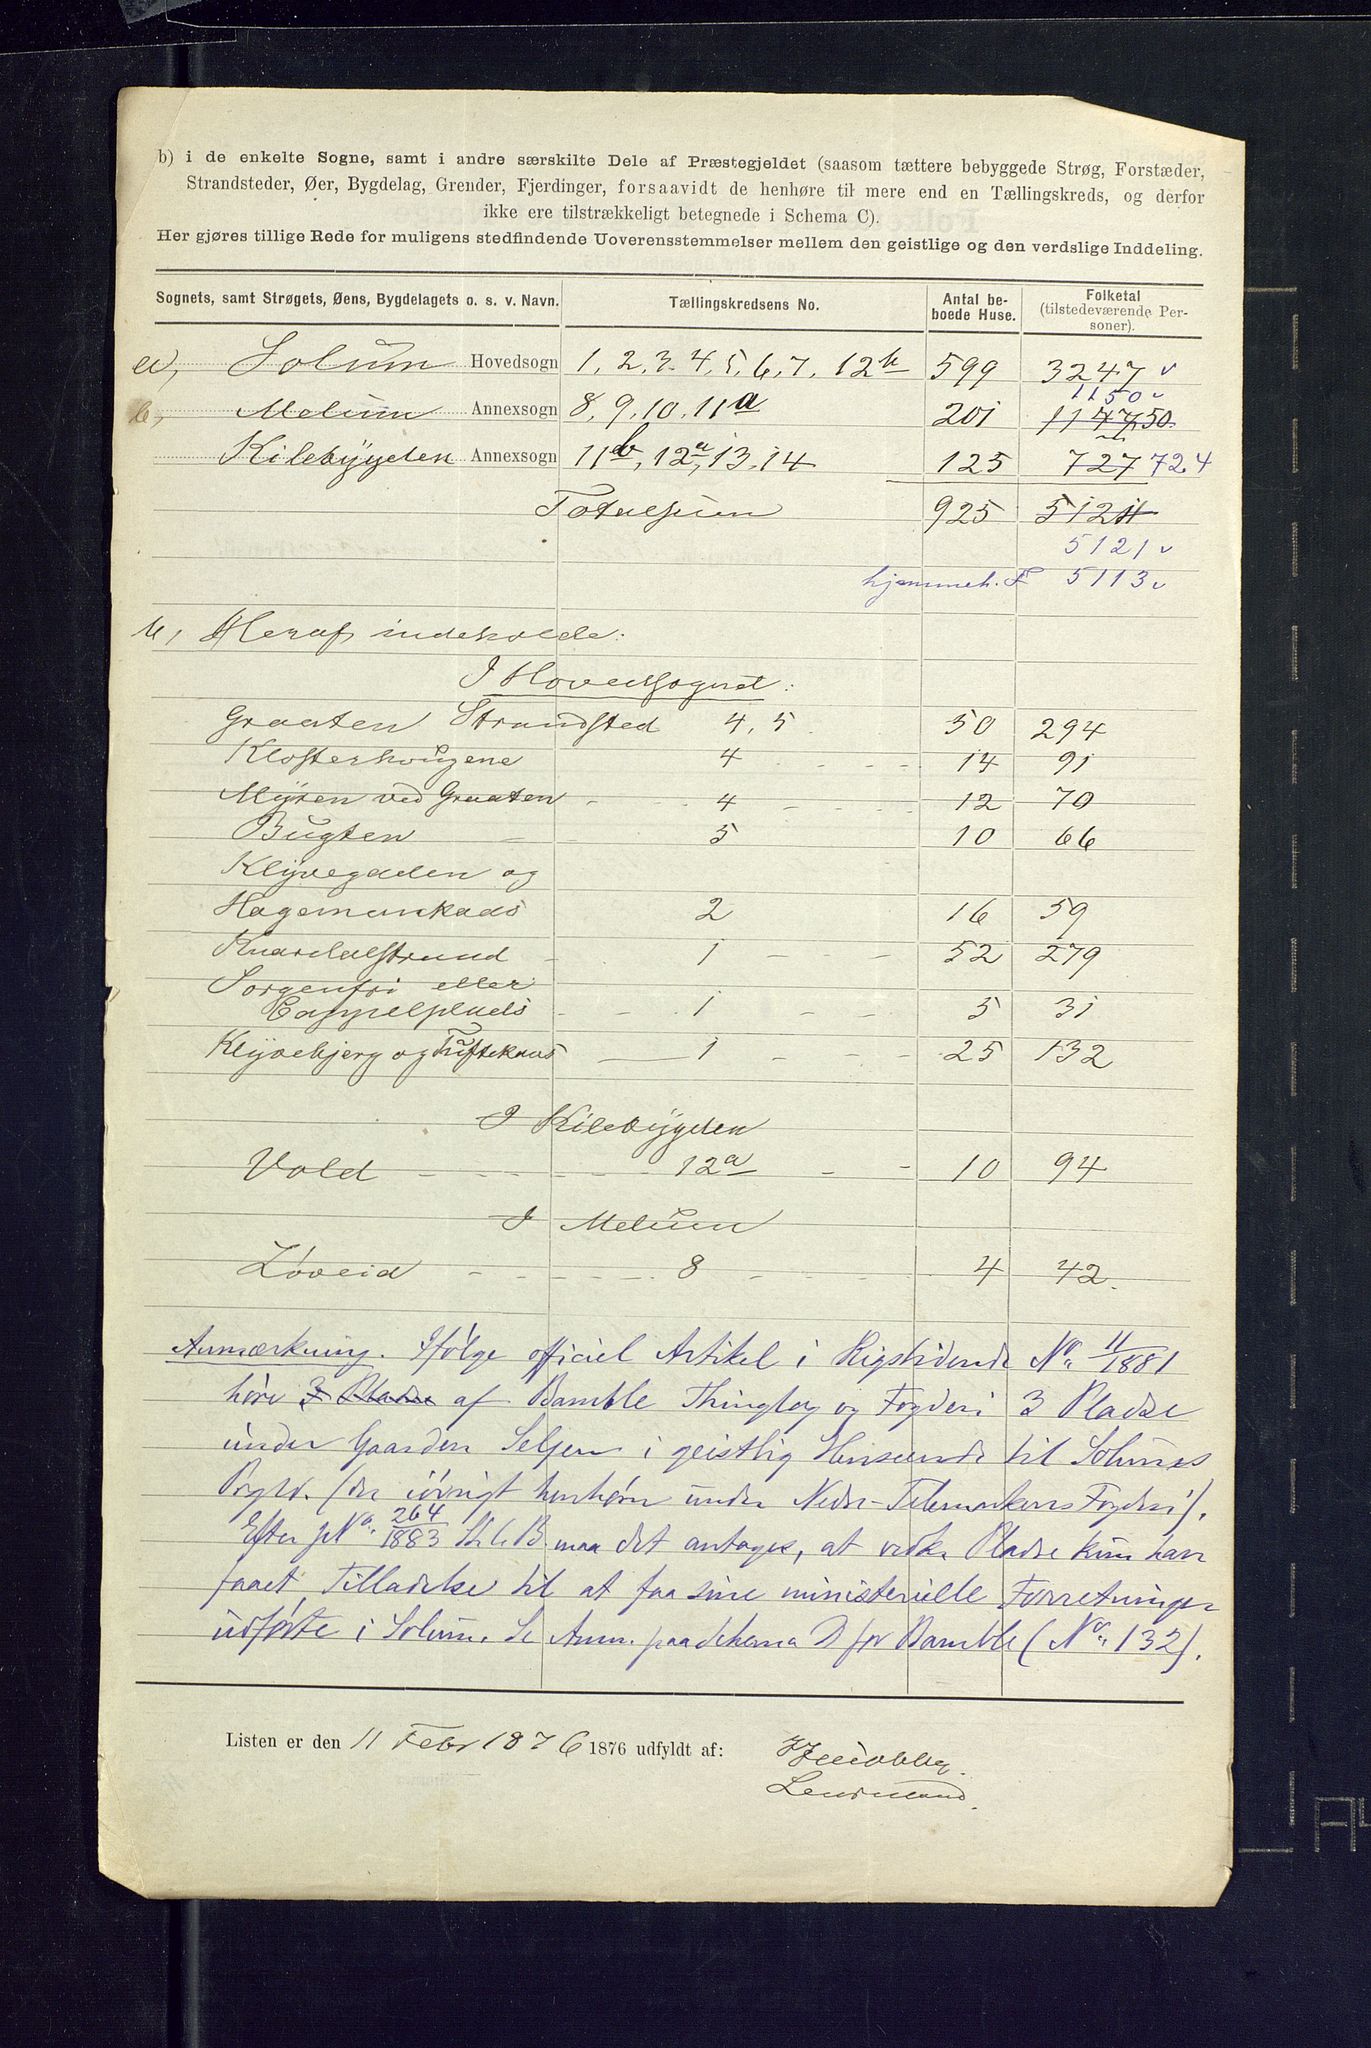 b) i de enkelte Sogne, samt i andre særskilte Dele af Præstegjeldet (saasom tættere bebyggede Strøg, Forstæder,
Strandsteder, Øer, Bygdelag, Grender, Fjerdinger, forsaavidt de henhøre til mere end en Tællingskreds, og derfor
ikke ere tilstrækkeligt betegnede i Schema C).
Her gjøres tillige Rede for muligens stedfindende Uoverensstemmelser mellem den geistlige og den verdslige Inddeling.
Sognets, samt Strøgets, Øens, Bygdelagets o. s. v. Navn. Tællingskredsens No. Antal beboede Huse. Folketal (tilstedeværende Personer).
a, Solum Hovedsogn 1, 2, 3. 4, 5, 6, 7, 12b 599 3247 v
1150 v
b, Melum Annexsogn 8, 9, 10, 11a 201 1147 50.
Kilebygden Annexsogn 11b, 12a, 13, 14 125 727 724
Totalsum 925 5121
5121 v
hjemmeh. F 5113 v
b, Heraf indeholde:
I Hovedsognet:
Graaten Strandsted 4, 5 50 294
Klosterhougene 4 14 91
Myren ved Graaten 4 12 70
Bugten 5 10 66
Klyvegaden og
Hagemankads 2 16 59
Knardalstrand 1 52 279
Sorgenfri eller
Cappelplads 1 5 31
Klyvebjerg og Tuftekaas 1 25 132
I Kilebygden
Vold 12a 10 94
I Melum
Løveid 8 4 42.
Anmærkning. Ifølge officiel Artikel i Rigstidende No. 11/1881
høre 3 Pladse af Bamble Thinglag og Fogderi 3 Pladse
under Gaarden Seljen i geistlig Henseende til Solums
Prgld. (der iøvrigt henhører under Nedre-Telemarkens Fogderi).
Efter jNo. 264/1883 maa det antages, at vedk. Pladse kun have
faaet Tilladelse til at faa sine ministerielle Forretninger
udførte i Solum. Se Anm. paa Schema D for Bamble (No. 132).
Listen er den 11 Febr 1876 1876 udfyldt af:
Lensmand.
A4